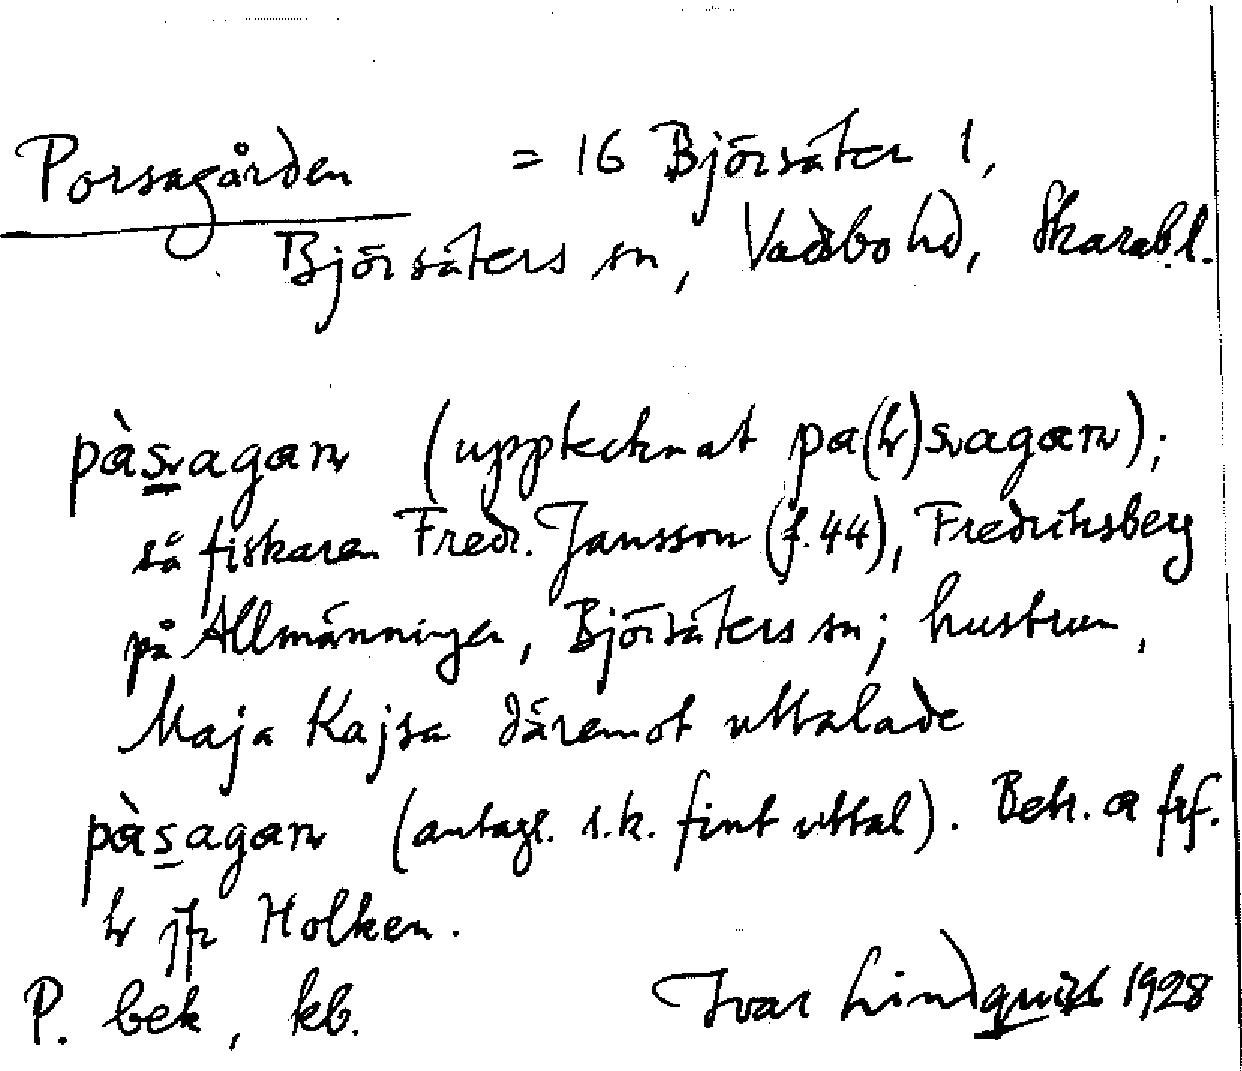 Porsagården = 16 Björsäter 1,
Björsäters sn, Vadsbo hd, Skarab.l.
pàsvagan (upptecknat pa(h)svagan);
så fiskaren Fredr. Jansson (f. 44), Fredriksberg
på Allmänningen, Björsäters sn; hustrun,
Maja Kajsa däremot uttalade
pàsagan (antagl. s.k. fint uttal). Betr. a frf.
h jfr Holken.
P. bek, kb. Ivar Lindquist 1928